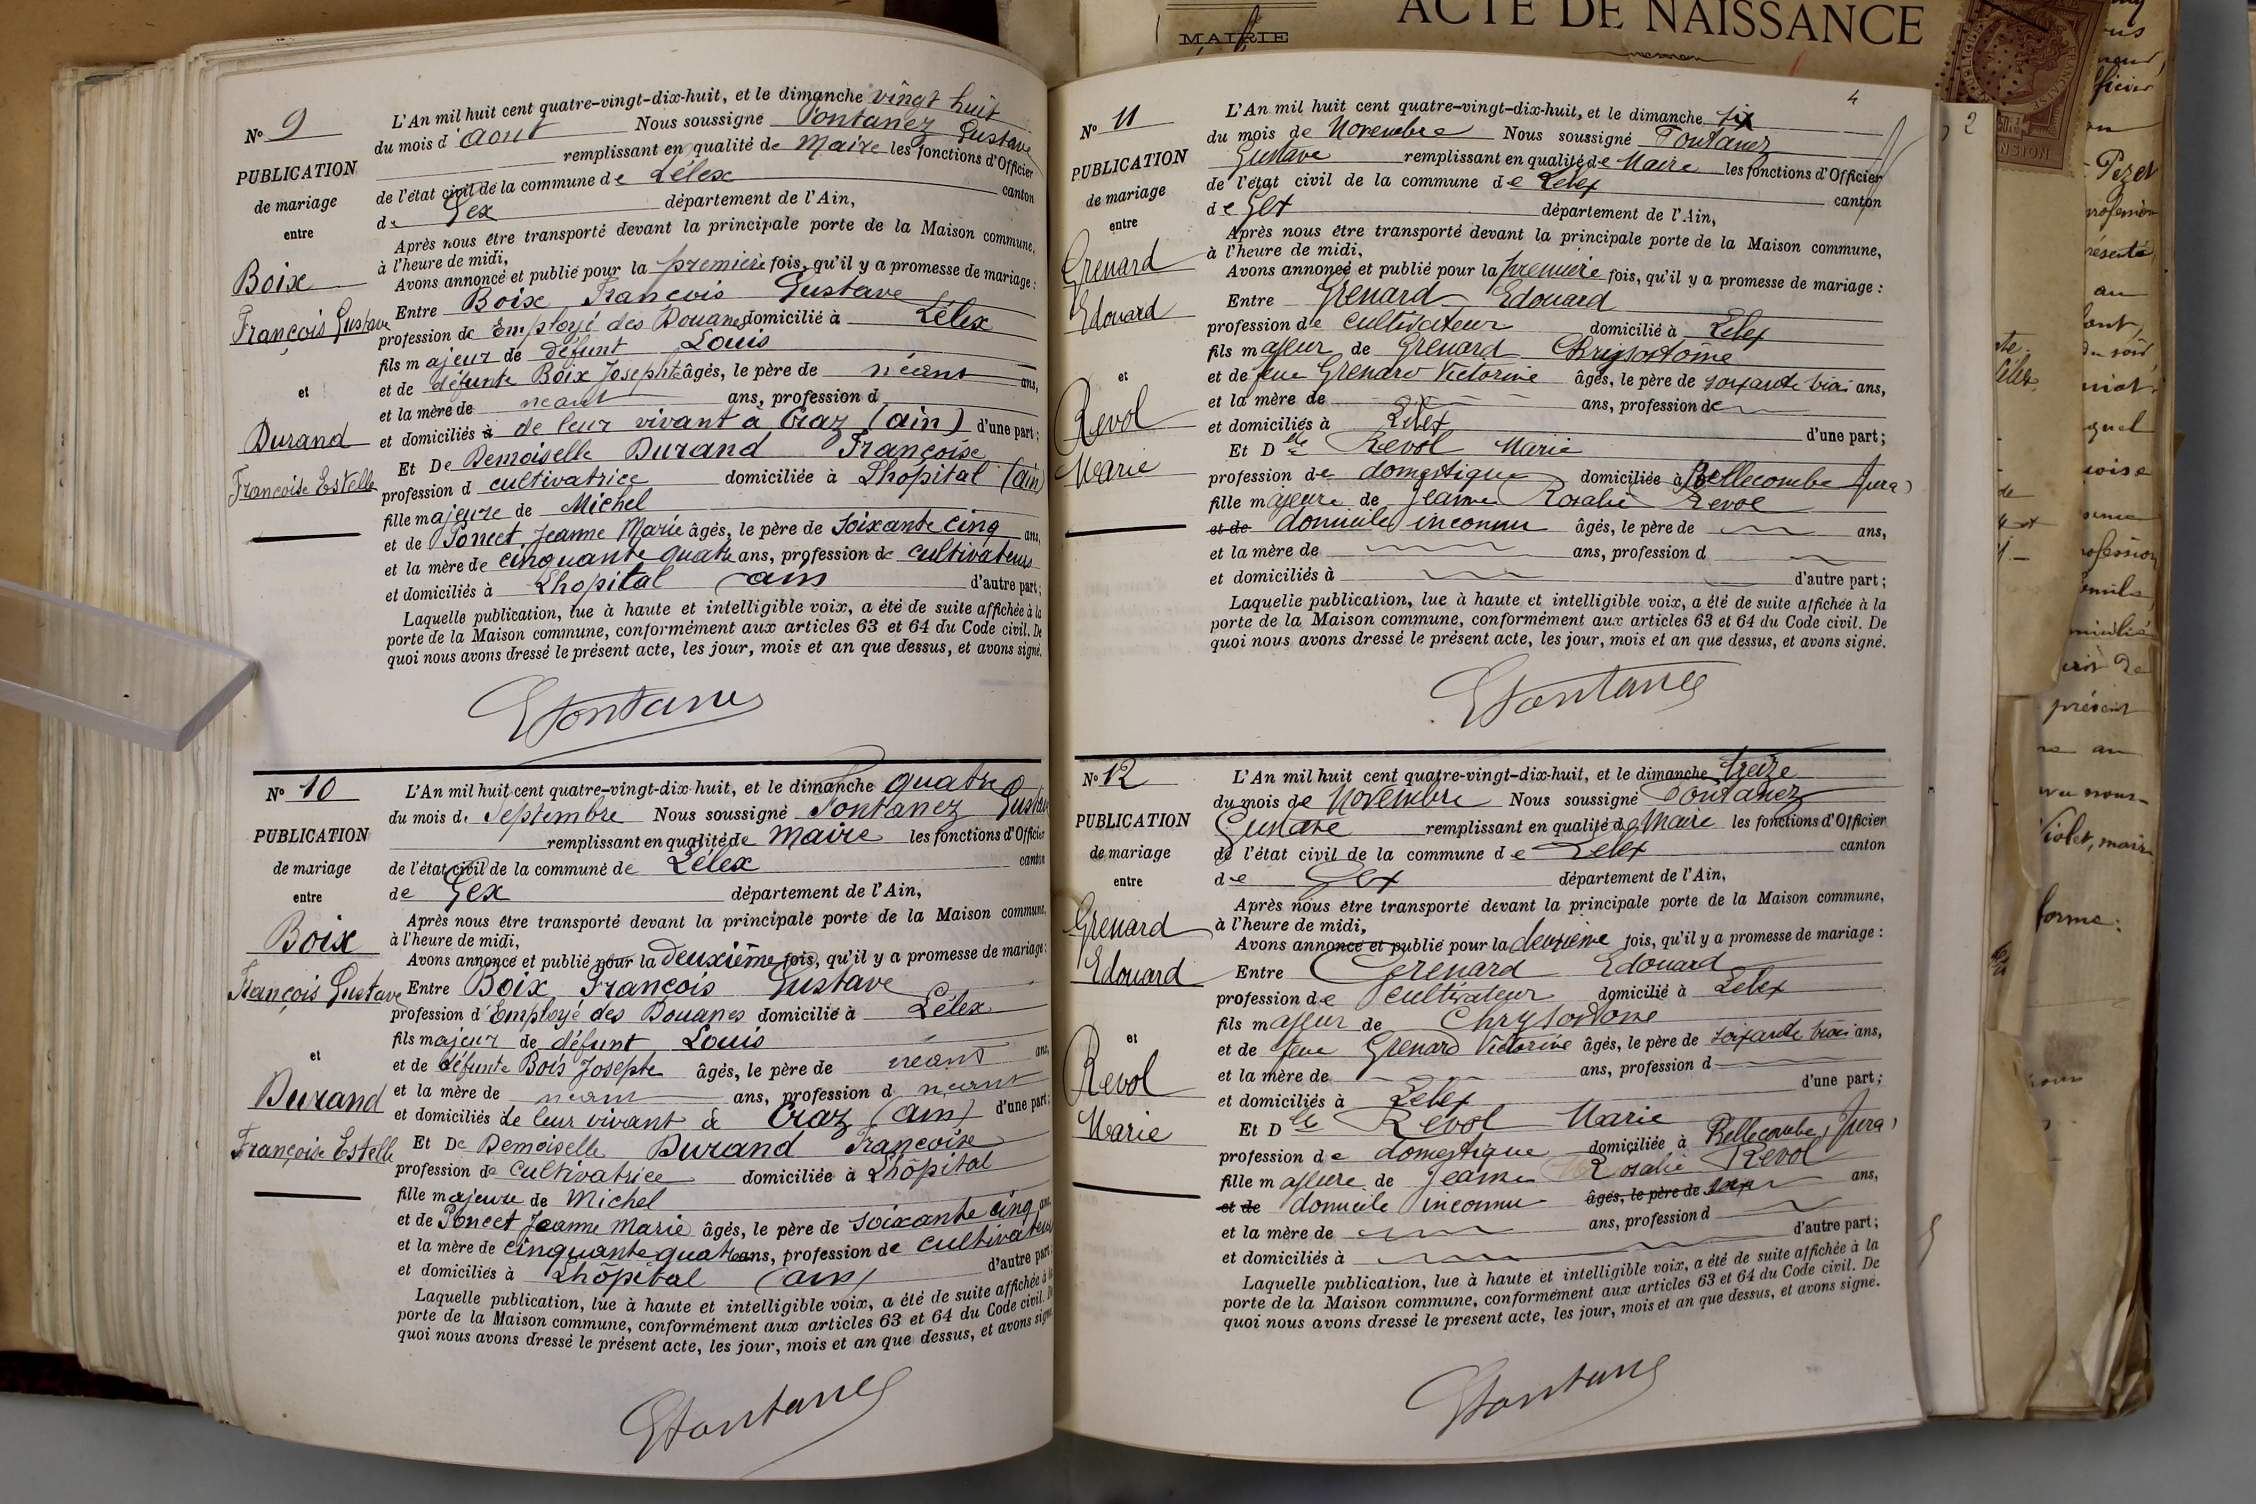 N° 9
PUBLICATION
de mariage
entre
Boix
François Gustave
et
Durand
Françoise Estelle
L'An mil huit cent quatre-vingt-dix-huit, et le dimanche vingt huit
du mois d'aout Nous soussigné Fontanez Gustave
remplissant en qualité de Maire les fonctions d'Officier
de l'état civil de la commune de Lélex canton
de Gex département de l'Ain,
Après nous être transporté devant la principale porte de la Maison commune,
à l'heure de midi,
Avons annoncé et publié pour la première fois, qu'il y a promesse de mariage :
Entre Boix François Gustave
profession de Employé des Douanes domicilié à Lélex
fils majeur de défunt Louis
et de défunte Boix Josephte âgés, le père de néant ans,
et la mère de neant ans, profession d
et domiciliés à de leur vivant à Craz (ain) d'une part ;
Et De Demoiselle Durand Françoise
profession d cultivatrice domiciliée à Lhopital (ain)
fille majeure de Michel
et de Poncet Jeanne Marie âgés, le père de soixante cinq ans,
et la mère de cinquante quatre ans, profession de cultivateurs
et domiciliés à Lhopital ain d'autre part ;
Laquelle publication, lue à haute et intelligible voix, a été de suite affichée à la
porte de la Maison commune, conformément aux articles 63 et 64 du Code civil. De
quoi nous avons dressé le présent acte, les jour, mois et an que dessus, et avons signé.
GFontanez
N° 10
PUBLICATION
de mariage
entre
Boix
François Gustave
et
Durand
Françoise Estelle
L'An mil huit cent quatre-vingt-dix-huit, et le dimanche quatre
du mois de Septembre Nous soussigné Fontanez Gustave
remplissant en qualité de maire les fonctions d'Officier
de l'état civil de la commune de Lélex canton
de Gex département de l'Ain,
Après nous être transporté devant la principale porte de la Maison commune,
à l'heure de midi,
Avons annoncé et publié pour la deuxième fois, qu'il y a promesse de mariage :
Entre Boix François Gustave
profession d'Employé des Douanes domicilié à Lélex
fils majeur de défunt Louis
et de défunte Bois Josephte âgés, le père de néant ans,
et la mère de néant ans, profession d néant
et domiciliés de leur vivant à Craz (ain) d'une part ;
Et De Demoiselle Durand Françoise
profession de cultivatrice domiciliée à Lhôpital
fille majeure de Michel
et de Poncet Jeanne Marie âgés, le père de soixante cinq ans,
et la mère de cinquante quatre ans, profession de cultivateurs
et domiciliés à Lhôpital (ain) d'autre part
Laquelle publication, lue à haute et intelligible voix, a été de suite affichée à la
porte de la Maison commune, conformément aux articles 63 et 64 du Code civil. De
quoi nous avons dressé le présent acte, les jour, mois et an que dessus, et avons signé
GFontanez
MAIRIE
ACTE DE NAISSANCE
4
2
N° 11
PUBLICATION
de mariage
entre
Grenard
Edouard
et
Revol
Marie
L'An mil huit cent quatre-vingt-dix-huit, et le dimanche six
du mois de Novembre Nous soussigné Fontanez
Gustave remplissant en qualité de Maire les fonctions d'Officier
de l'état civil de la commune de Lélex canton
de Gex département de l'Ain,
Après nous être transporté devant la principale porte de la Maison commune,
à l'heure de midi,
Avons annoncé et publié pour la première fois, qu'il y a promesse de mariage :
Entre Grenard Edouard
profession de cultivateur domicilié à Lélex
fils majeur de Grenard Chrysostôme
et de feue Grenard Victorine âgés, le père de soixante trois ans,
et la mère de ans, profession de
et domiciliés à Lélex d'une part ;
Et Dlle Revol Marie
profession de domestique domiciliée à Bellecombe (Jura)
fille majeure de Jeanne Rosalie Revol
et de domicile inconnu âgés, le père de ans,
et la mère de ans, profession d
et domiciliés à d'autre part ;
Laquelle publication, lue à haute et intelligible voix, a été de suite affichée à la
porte de la Maison commune, conformément aux articles 63 et 64 du Code civil. De
quoi nous avons dressé le présent acte, les jour, mois et an que dessus, et avons signé.
GFontanez
N° 12
PUBLICATION
de mariage
entre
Grenard
Edouard
et
Revol
Marie
L'An mil huit cent quatre-vingt-dix-huit, et le dimanche treize
du mois de Novembre Nous soussigné Fontanez
Gustave remplissant en qualité de Maire les fonctions d'Officier
de l'état civil de la commune de Lelex canton
de Gex département de l'Ain,
Après nous être transporté devant la principale porte de la Maison commune,
à l'heure de midi,
Avons annoncé et publié pour la deuxième fois, qu'il y a promesse de mariage :
Entre Grenard Edouard
profession de cultivateur domicilié à Lelex
fils majeur de Chrysostome
et de feue Grenard Victorine âgés, le père de soixante trois ans,
et la mère de ans, profession d
et domiciliés à Lelex d'une part ;
Et Dlle Revol Marie
profession de domestique domiciliée à Bellecombe (Jura)
fille majeure de Jeanne Rosalie Revol
et de domicile inconnu âgés, le père de ans,
et la mère de ans, profession d
et domiciliés à d'autre part ;
Laquelle publication, lue à haute et intelligible voix, a été de suite affichée à la
porte de la Maison commune, conformément aux articles 63 et 64 du Code civil. De
quoi nous avons dressé le present acte, les jour, mois et an que dessus, et avons signé.
GFontanez